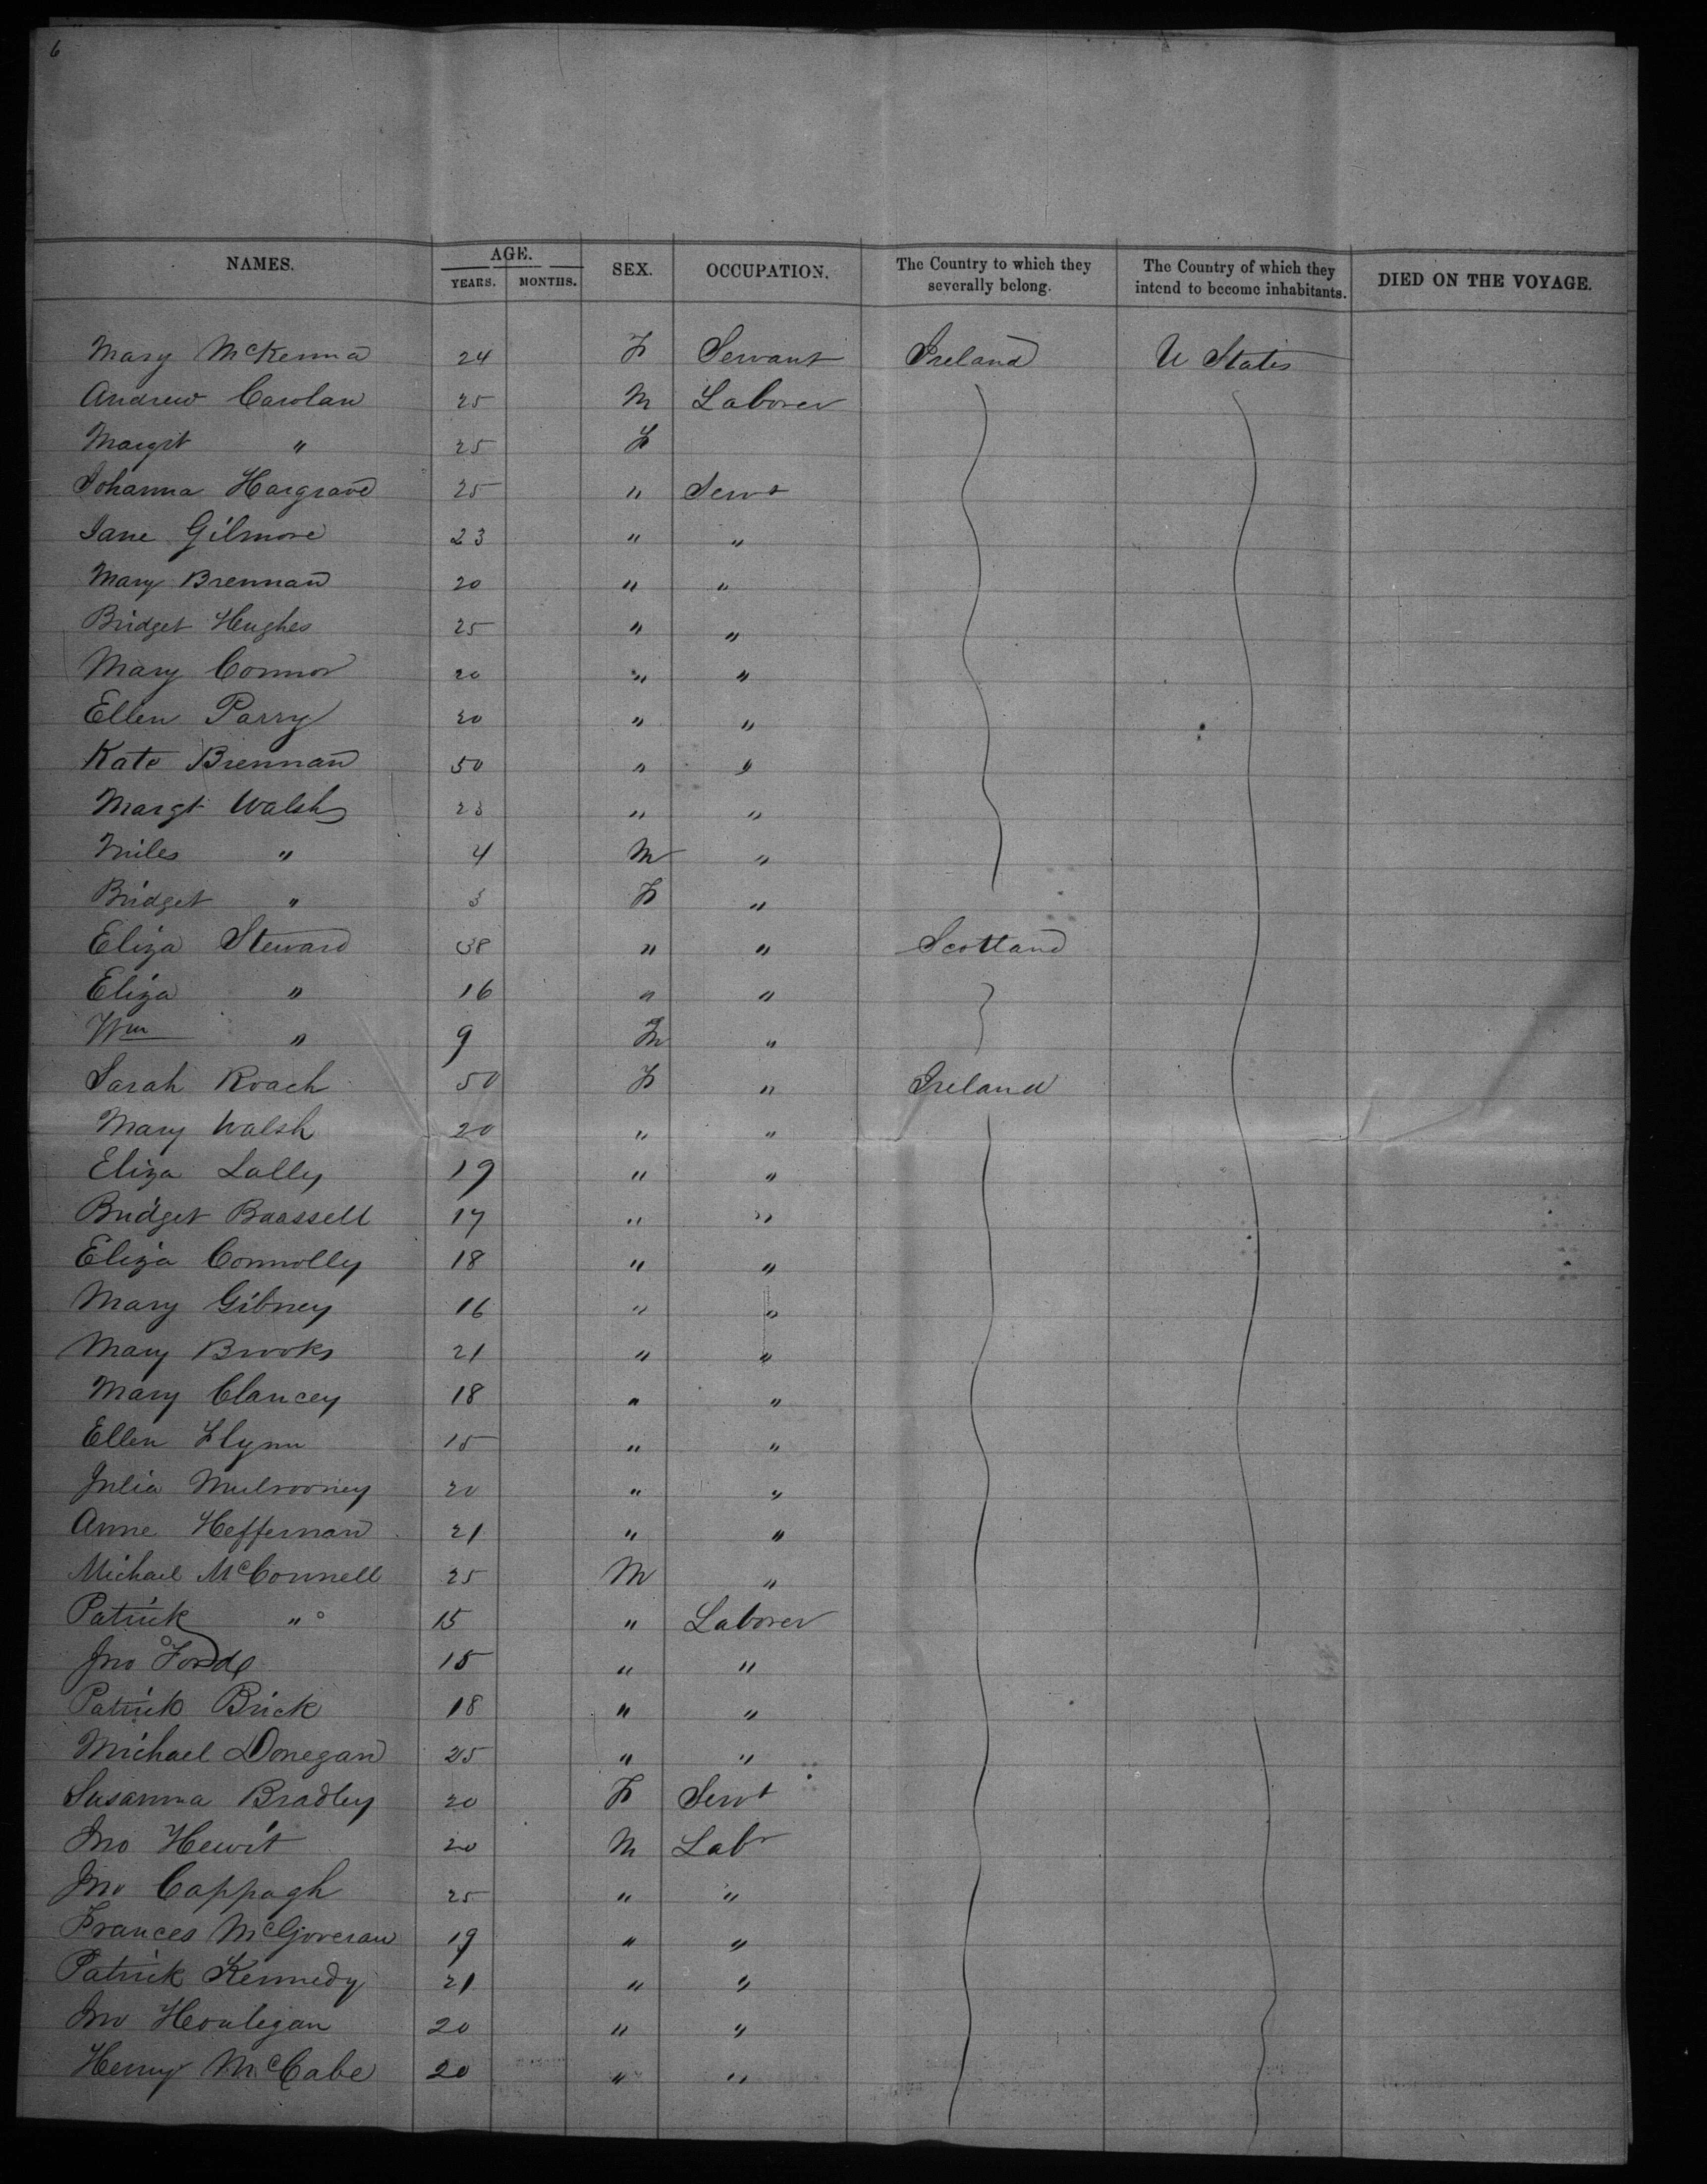 6
NAMES. AGE. SEX. OCCUPATION. The Country to which they severally belong. The Country of which they intend to become inhabitants. DIED ON THE VOYAGE.
YEARS. MONTHS.
Mary McKenna 24 F Servant Ireland U States
Andrew Carolan 25 M Laborer
Margrt " 25 F
Johanna Hargrave 25 " Servt
Jane Gilmore 23 " "
Mary Brennan 20 " "
Bridget Hughes 25 " "
Mary Connor 20 " "
Ellen Parry 20 " "
Kate Brennan 50 " "
Margt Walsh 23 " "
Miles " 4 M "
Bridget " 3 F "
Eliza Steward 38 " " Scotland
Eliza " 16 " "
Wm " 9 M "
Sarah Roach 50 F " Ireland
Mary Walsh 20 " "
Eliza Lally 19 " "
Bridget Baassell 17 " "
Eliza Connolly 18 " "
Mary Gibney 16 " "
Mary Brooks 21 " "
Mary Clancey 18 " "
Ellen Flynn 15 " "
Julia Mulrooney 20 " "
Anne Heffernan 21 " "
Michael McConnell 25 M "
Patrick " 15 " Laborer
Jno Forde 15 " "
Patrick Brick 18 " "
Michael Donegan 25 " "
Susanna Bradley 20 F Servt
Jno Hewit 20 M Labr
Jno Cappagh 25 " "
Frances McGoveran 19 " "
Patrick Kennedy 21 " "
Jno Houligan 20 " "
Henry McCabe 20 " "